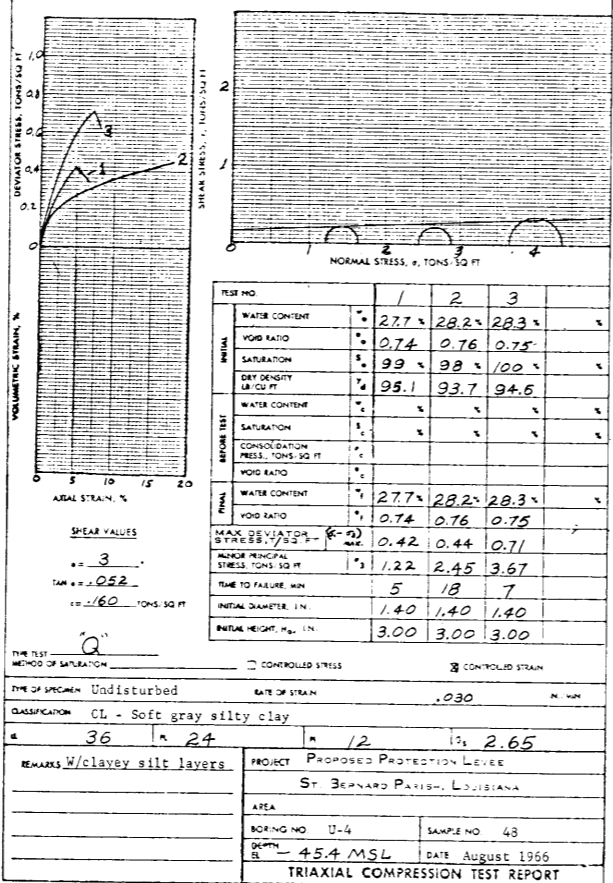 DEVIATOR STRESS, TONS/SQ FT
1.0
0.8
0.6
0.4
0.2
0
3
1
2
SHEAR STRESS, τ, TONS/SQ FT
2
1
0
0 1 2 3 4
NORMAL STRESS, σ, TONS/SQ FT
VOLUMETRIC STRAIN, %
0 5 10 15 20
AXIAL STRAIN, %
SHEAR VALUES
ø = 3 °
TAN ø = .052
c = .160 TONS/SQ FT
TEST NO. 1 2 3
INITIAL
WATER CONTENT wo 27.7 % 28.2 % 28.3 % %
VOID RATIO eo 0.74 0.76 0.75
SATURATION So 99 % 98 % 100 % %
DRY DENSITY LB/CU FT γd 95.1 93.7 94.6
BEFORE TEST
WATER CONTENT wc % % % %
SATURATION Sc % % % %
CONSOLIDATION PRESS., TONS/SQ FT σc
VOID RATIO ec
FINAL
WATER CONTENT wf 27.7 % 28.2 % 28.3 % %
VOID RATIO ef 0.74 0.76 0.75
MAX. DEVIATOR STRESS, T/SQ. FT (σ1-σ3) MAX. 0.42 0.44 0.71
MINOR PRINCIPAL STRESS, TONS/SQ FT σ3 1.22 2.45 3.67
TIME TO FAILURE, MIN 5 18 7
INITIAL DIAMETER, IN. 1.40 1.40 1.40
INITIAL HEIGHT, Ho, IN. 3.00 3.00 3.00
TYPE TEST "Q"
METHOD OF SATURATION CONTROLLED STRESS CONTROLLED STRAIN
TYPE OF SPECIMEN Undisturbed RATE OF STRAIN .030 IN./MIN
CLASSIFICATION CL - Soft gray silty clay
LL 36 PL 24 PI 12 Gs 2.65
REMARKS W/clayey silt layers
PROJECT PROPOSED PROTECTION LEVEE
ST. BERNARD PARISH, LOUISIANA
AREA
BORING NO. U-4 SAMPLE NO. 48
DEPTH EL - 45.4 MSL DATE August 1966
TRIAXIAL COMPRESSION TEST REPORT